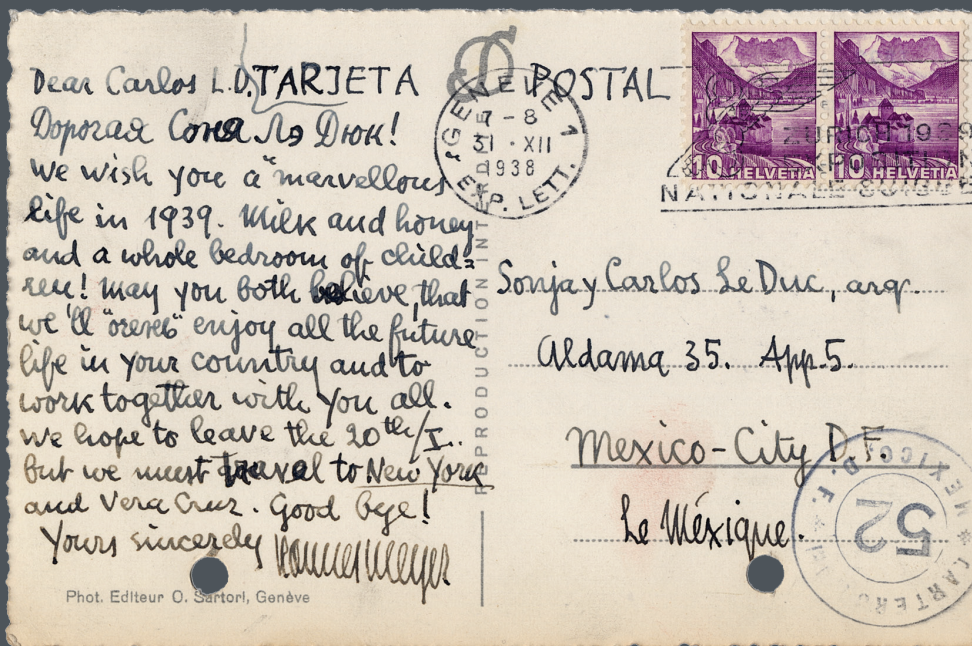 Dear Carlos L.D. TARJETA POSTAL
Дорогая Соня Лэ Дюк!
we wish you a "marvellous
life in 1939. Milk and honey
and a whole bedroom of child=
ren! May you both believe, that
we'll enjoy all the future
life in your country and to
work together with you all.
we hope to leave the 20th/I..
but we must travel to New York
and Vera Cruz. Good bye!
Yours sincerely hannes meyer
Phot. Editeur O. Sartori, Genève
REPRODUCTION INTERDITE
GENÈVE 1
7-8
31·XII
1938
EXP. LETT.
10 HELVETIA
10 HELVETIA
ZURICH 1939
NATIONALE SUISSE
Sonja y Carlos Le Duc, arq.
Aldama 35. App. 5.
Mexico-City D.F.
Le Méxique.
52
MEXICO D. F.